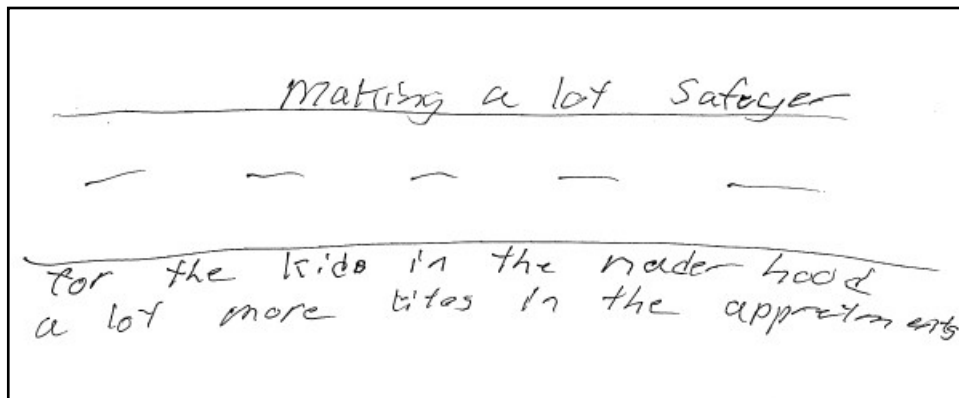 making a lot safeyer
for the kids in the nader hood
a lot more lites in the appretments